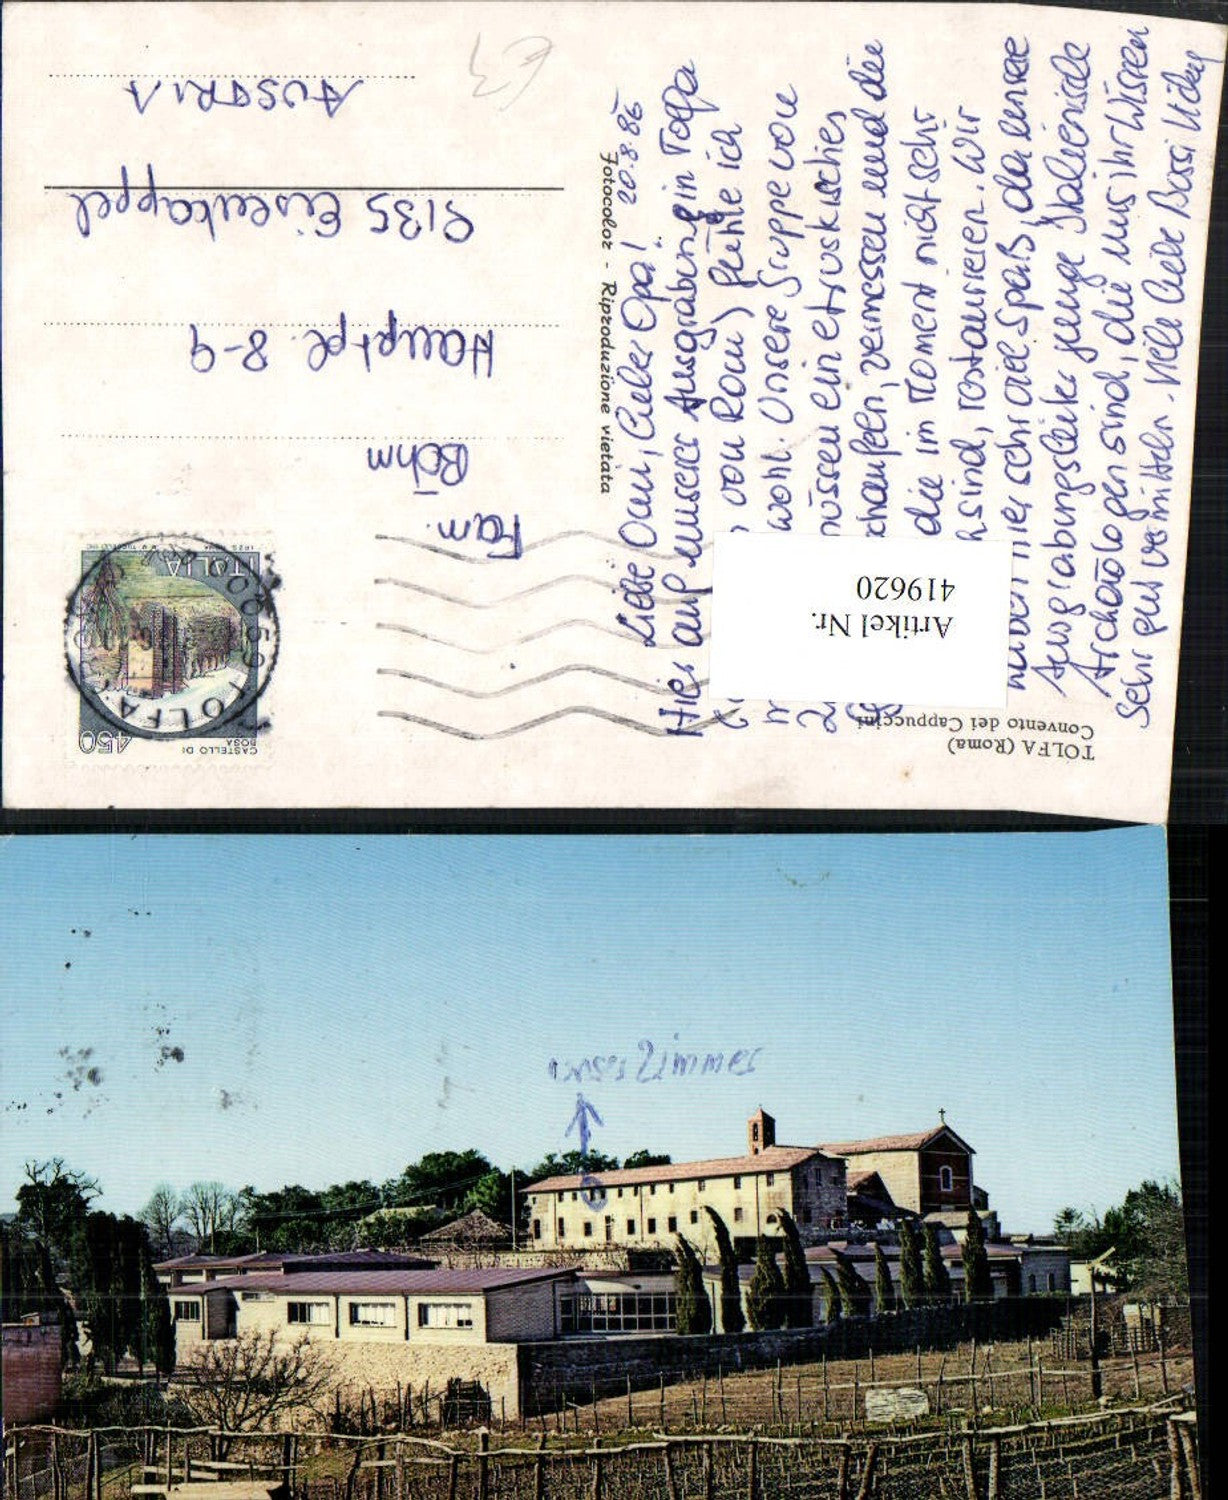 20.8.86
Liebe Omi, lieber Opa!
Hier auf unserer Ausgrabung in Tolfa
von Rom) fühle ich
wohl. Unsere Gruppe von
müssen ein etruskisches
schaufeln, vermessen und die
die im Moment nicht sehr
sind, restaurieren. Wir
haben hier sehr viel Spaß, da unsere
Ausgrabungsleiter junge Italienische
Archäologen sind, die uns ihr Wissen
sehr gut vermitteln. Viele liebe Bussi
Fotocolor - Riproduzione vietata
TOLFA (Roma)
Convento dei Cappuccini
Artikel Nr.
419620
CASTELLO DI
BOSA
450
ITALIA
TOLFA
Fam.
Böhm
Hauptpl. 8-9
9135 Eisenkappel
AUSTRIA
€3
unser Zimmer